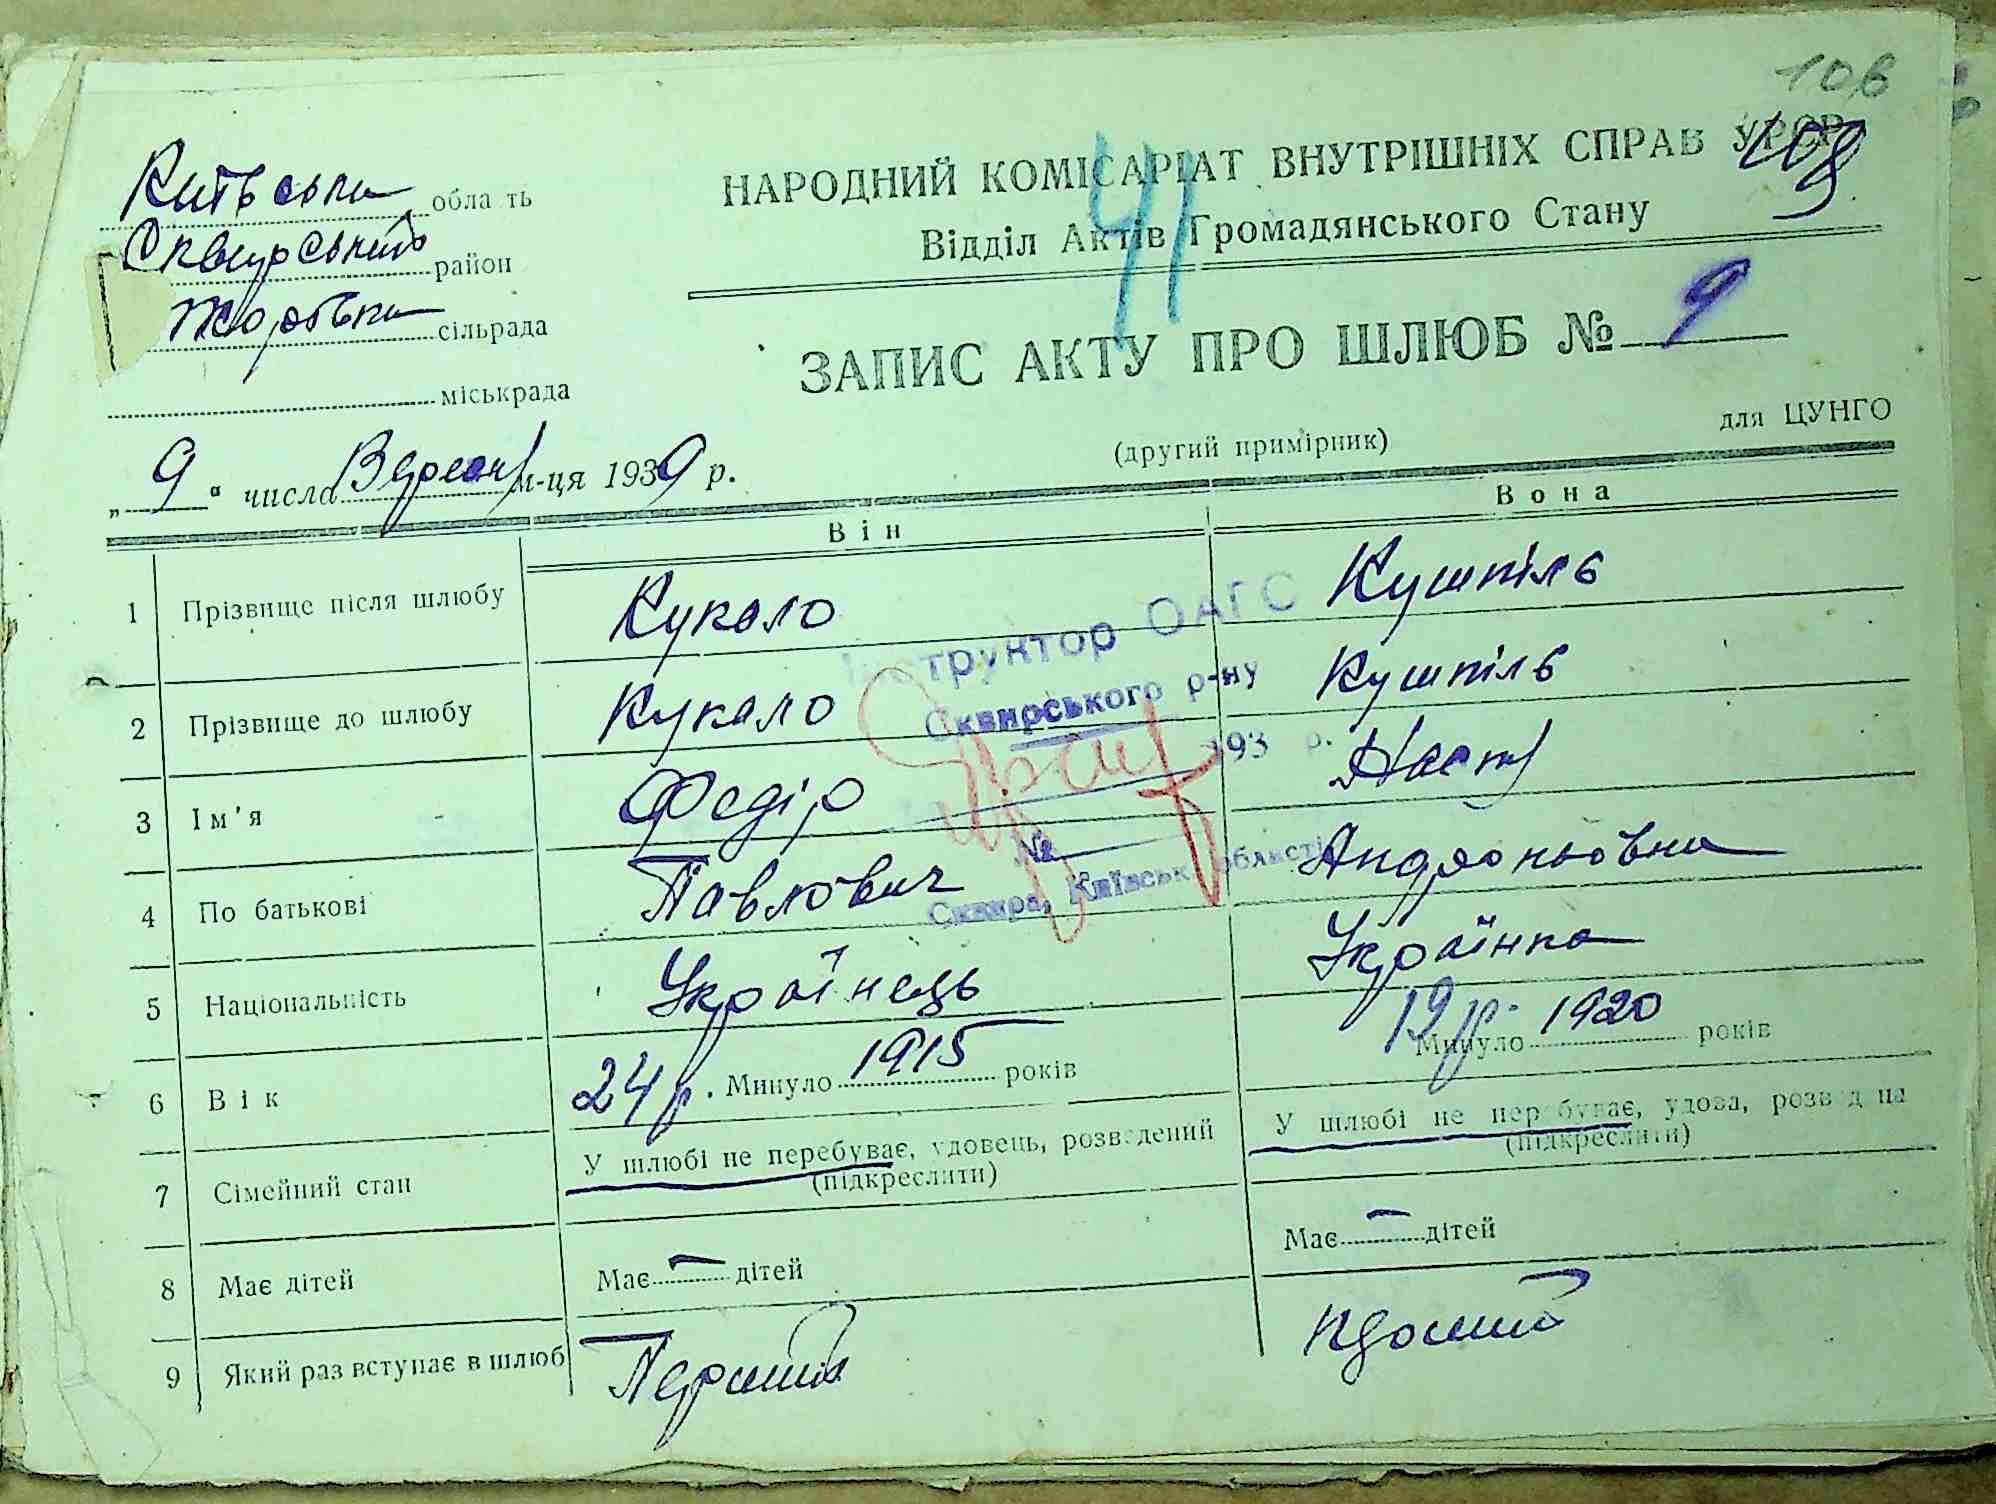 106
109
41
Київська область
Сквирський район
сільрада
міськрада
НАРОДНИЙ КОМІСАРІАТ ВНУТРІШНІХ СПРАВ УРСР
Відділ Актів Громадянського Стану
ЗАПИС АКТУ ПРО ШЛЮБ № 9
(другий примірник)
для ЦУНГО
„ 9 " числа Вересня м-ця 1939 р.
Він
Вона
1 Прізвище після шлюбу Кукало Кушпіль
2 Прізвище до шлюбу Кукало Кушпіль
3 Ім'я Федір Настя
4 По батькові Павлович Андроньовна
5 Національність Українець Українка
6 Вік 24 р. Минуло 1915 років 19 р. Минуло 1920 років
7 Сімейний стан У шлюбі не перебуває, удовець, розведений (підкреслити) У шлюбі не перебуває, удова, розведена (підкреслити)
8 Має дітей Має — дітей Має — дітей
9 Який раз вступає в шлюб Перший
Інструктор ОАГС
Сквирського р-ну
193 р.
№
Сквира, Київськ. області